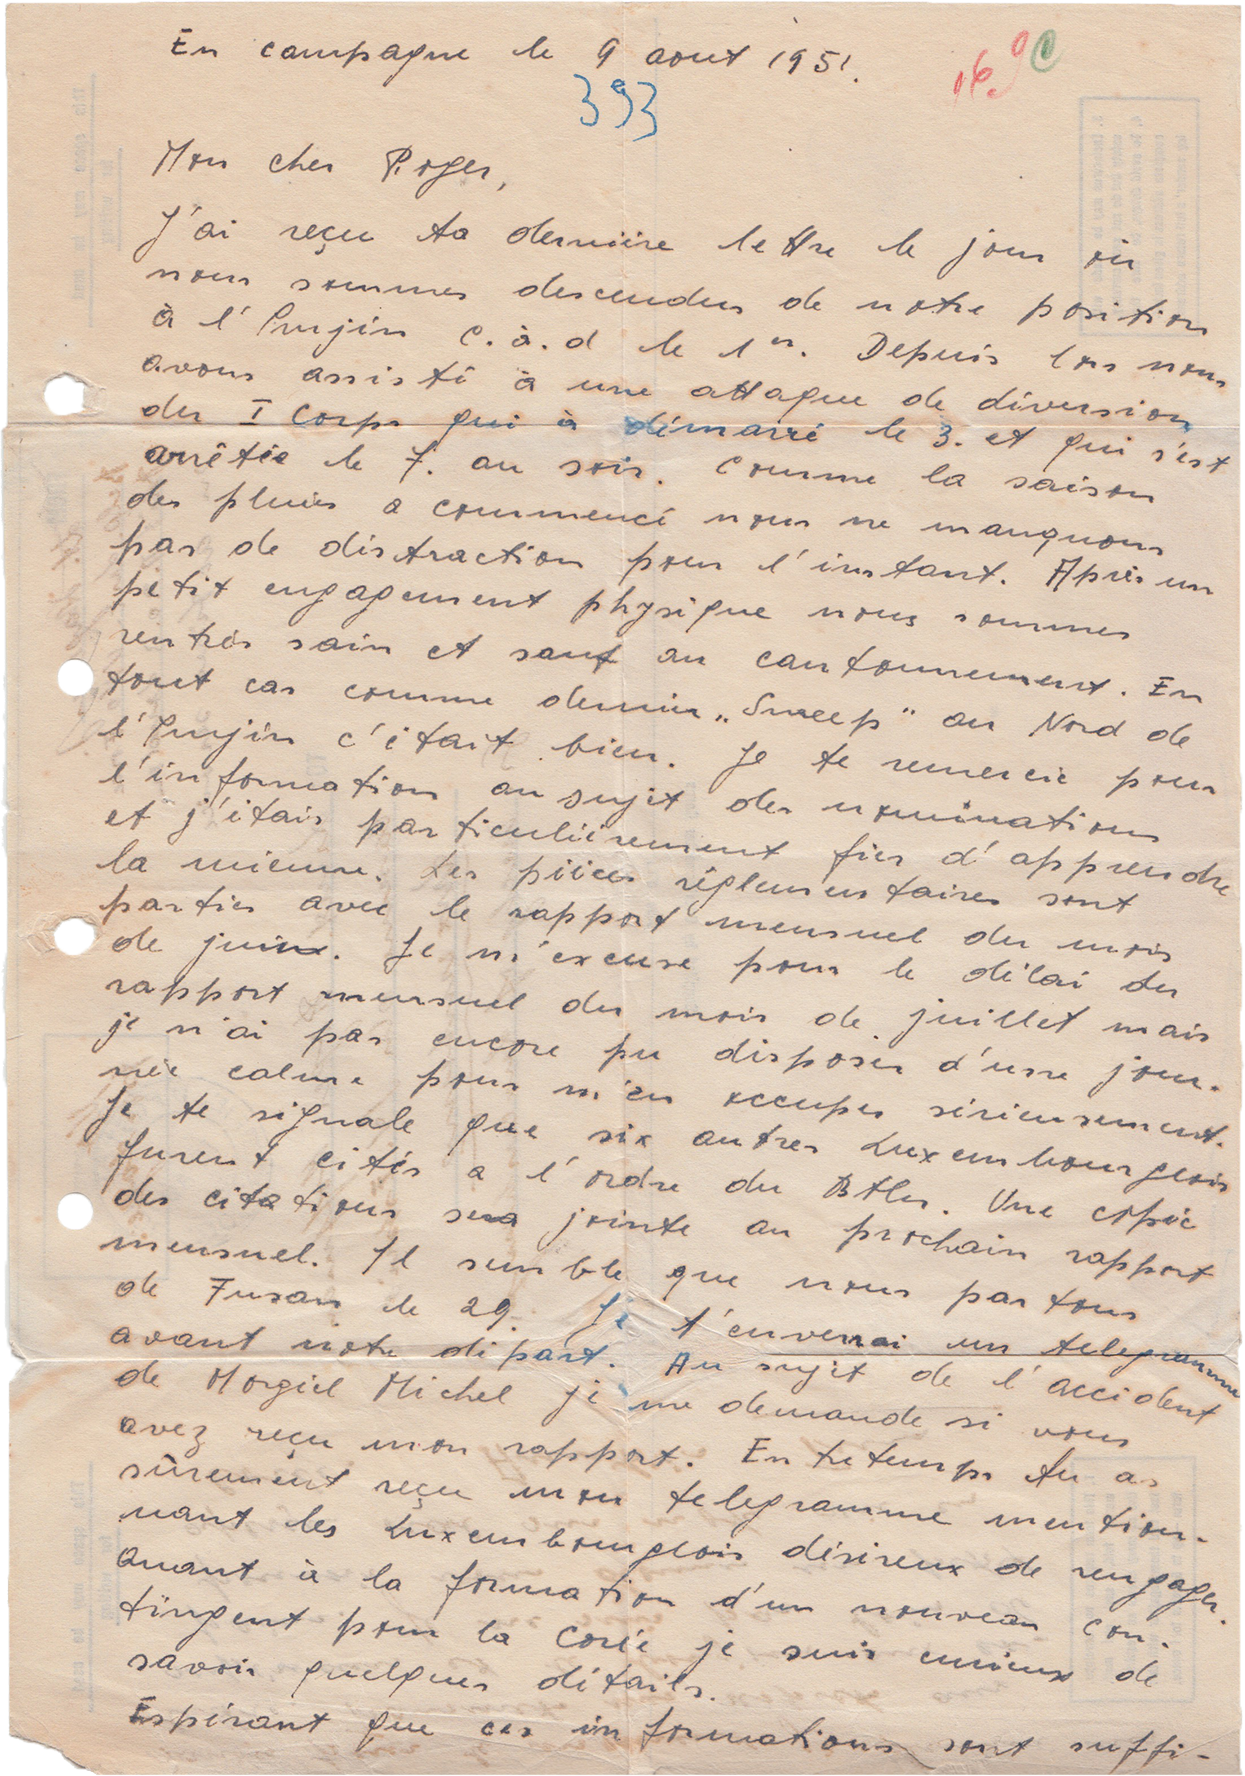 En campagne le 9 aout 1951.
393
Mon cher Roger,
J'ai reçu ta dernière lettre le jour où
nous sommes descendus de notre position
à l'Imjin c.à.d le 1er. Depuis lors nous
avons assisté à une attaque de diversion
du I Corps qui à démarré le 3. et qui s'est
arrêtée le 7. au soir. Comme la saison
des pluies a commencé nous ne manquons
pas de distraction pour l'instant. Après un
petit engagement physique nous sommes
rentrés sain et sauf au cantonnement. En
tout cas comme dernier „Sweep" au Nord de
l'Imjin c'était bien. Je te remercie pour
l'information au sujet des nominations
et j'étais particulièrement fier d'apprendre
la mienne. Les pièces réglementaires sont
parties avec le rapport mensuel du mois
de juin. Je m'excuse pour le délai du
rapport mensuel du mois de juillet mais
je n'ai pas encore pu disposer d'une jour-
née calme pour m'en occuper sérieusement.
Je te signale que six autres Luxembourgeois
furent cités a l'ordre du Btln. Une copie
des citations sera jointe au prochain rapport
mensuel. Il semble que nous partons
de Fusan le 29. Je t'enverrai un telegramme
avant notre départ. Au sujet de l'accident
de Michel je me demande si vous
avez reçu mon rapport. Entretemps tu as
sûrement reçu mon telegramme mention-
nant les Luxembourgeois désireux de rengager.
Quant à la formation d'un nouveau con-
tingent pour la Corée je suis curieux de
savoir quelques détails.
Espérant que ces informations sont suffi-